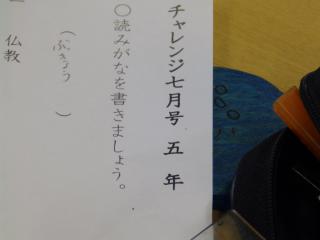 チャレンジ七月号 五年
○読みがなを書きましょう。
(ぶっきょう)
一 仏教